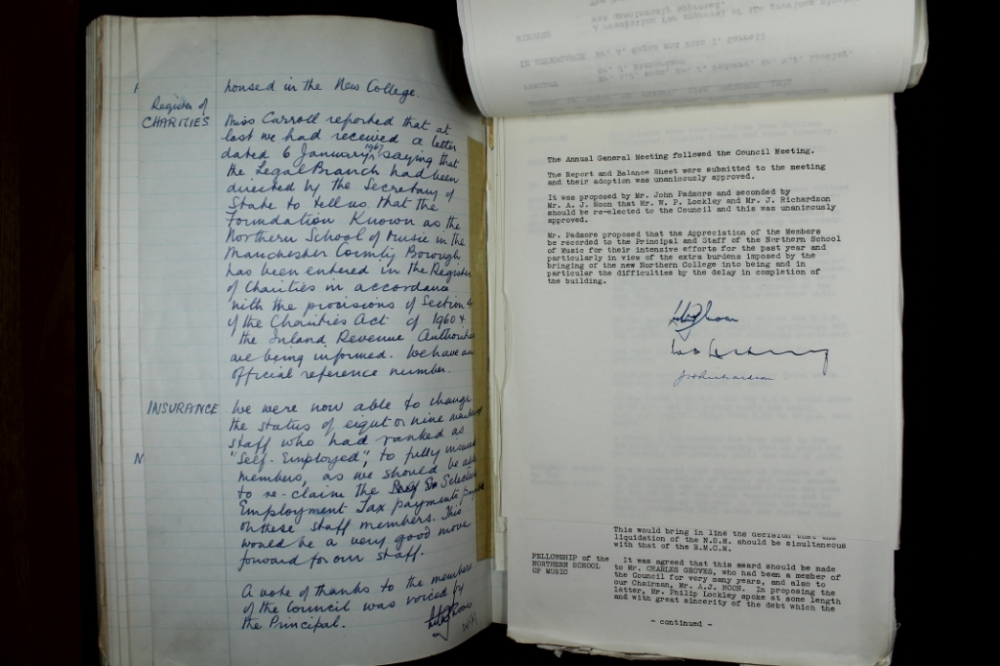 housed in the New College.
Register of
CHARITIES
Miss Carroll reported that at
last we had received a letter
dated 6 January 1967 saying that
the Legal Branch had been
directed by the Secretary of
State to tell us that the
Foundation Known as the
Northern School of Music in the
Manchester County Borough
has been entered in the Register
of Charities in accordance
with the provisions of Section 4
of the Charities Act of 1960 &
the Inland Revenue Authorities
are being informed. We have an
official reference number.
INSURANCE
We were now able to change
the status of eight or nine members
staff who had ranked as
"Self-Employed", to fully insured
members, as we should be able
to re-claim the Selective
Employment Tax payments
on these staff members. This
would be a very good move
forward for our staff.
A vote of thanks to the members
of the Council was voiced by
the Principal.
N
The Annual General Meeting followed the Council Meeting.
The Report and Balance Sheet were submitted to the meeting
and their adoption was unanimously approved.
It was proposed by Mr. John Padmore and seconded by
Mr. A. J. Moon that Mr. W. P. Lockley and Mr. J. Richardson
should be re-elected to the Council and this was unanimously
approved.
Mr. Padmore proposed that the Appreciation of the Members
be recorded to the Principal and Staff of the Northern School
of Music for their intensive efforts for the past year and
particularly in view of the extra burdens imposed by the
bringing of the new Northern College into being and in
particular the difficulties by the delay in completion of
the building.
This would bring in line the decision that the
liquidation of the N.S.M. should be simultaneous
with that of the R.M.C.M.
FELLOWSHIP of the
NORTHERN SCHOOL
OF MUSIC
It was agreed that this award should be made
to Mr. CHARLES GROVES, who had been a member of
the Council for very many years, and also to
our Chairman, Mr. A.J. MOON. In proposing the
latter, Mr. Philip Lockley spoke at some length
and with great sincerity of the debt which the
- continued -